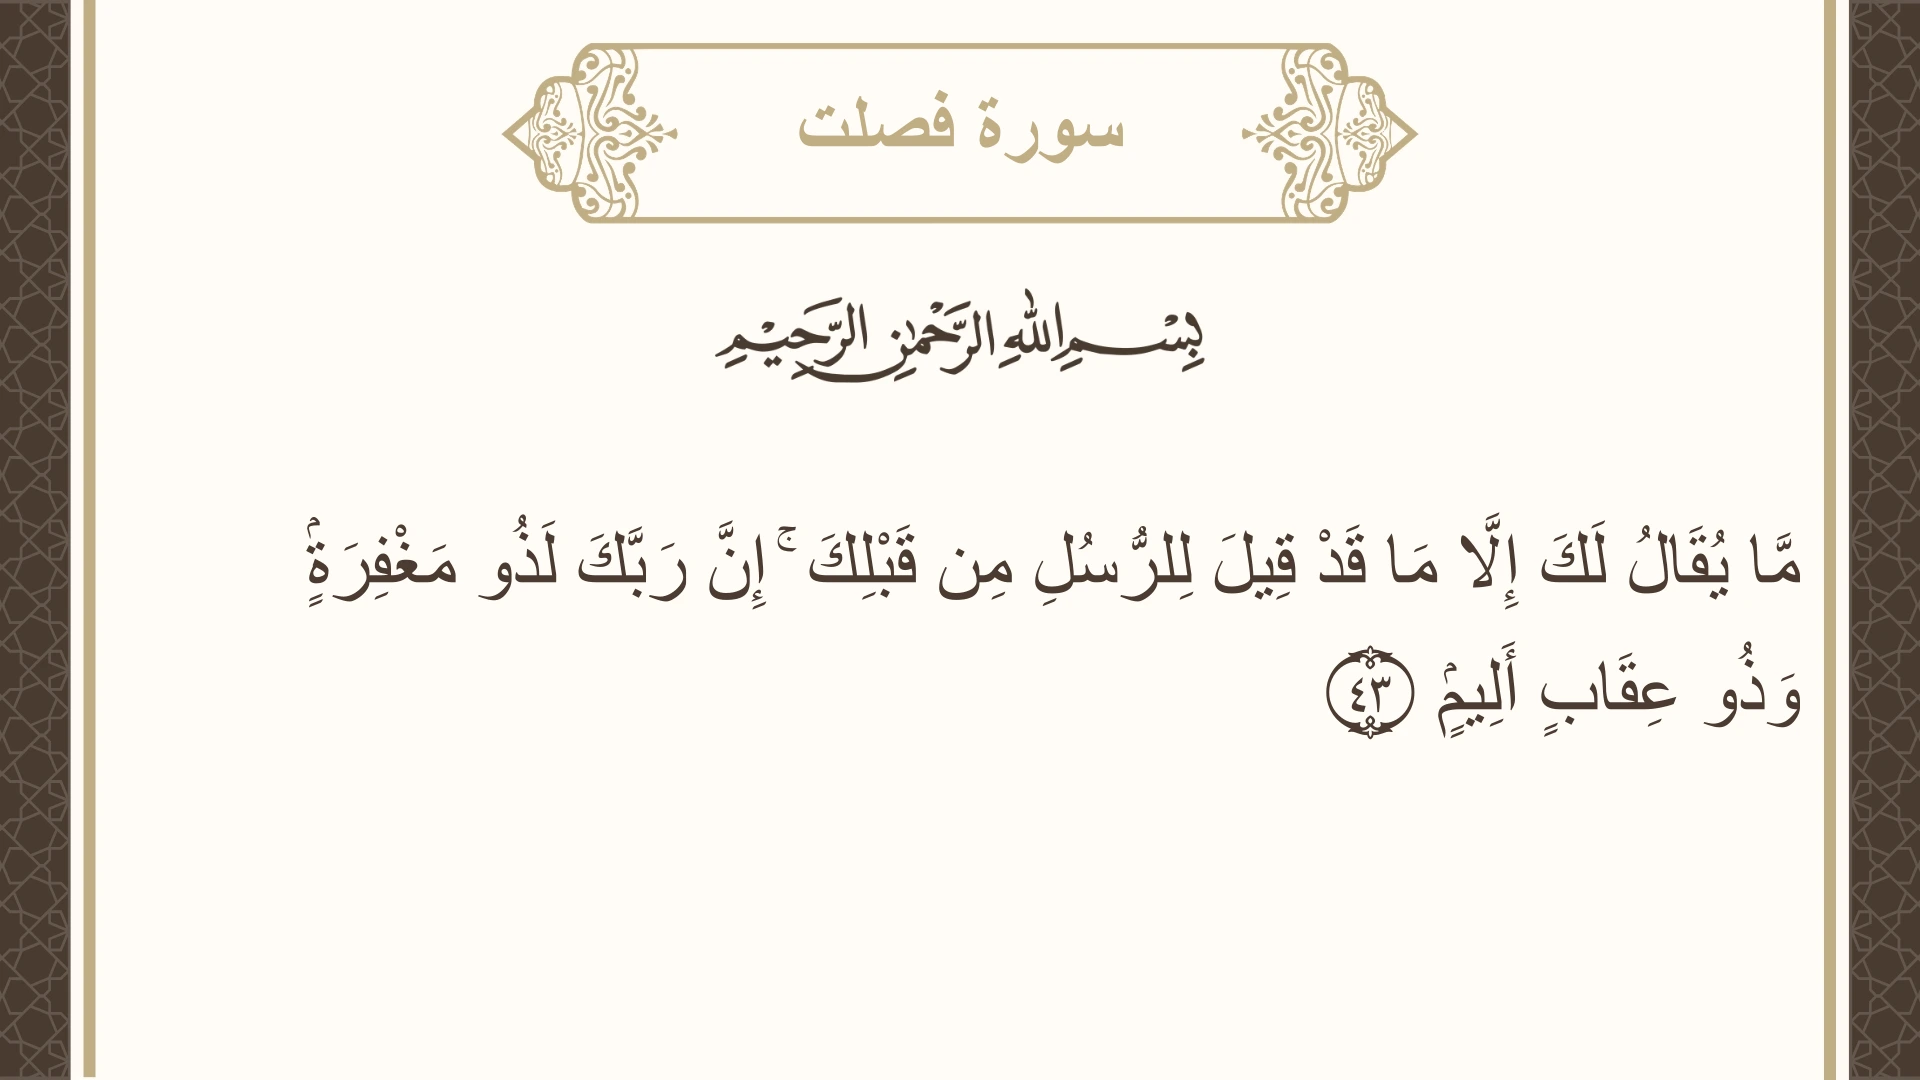 سورة فصلت
بِسْمِ اللهِ الرَّحْمٰنِ الرَّحِيْمِ
مَّا يُقَالُ لَكَ إِلَّا مَا قَدْ قِيلَ لِلرُّسُلِ مِن قَبْلِكَ ۚ إِنَّ رَبَّكَ لَذُو مَغْفِرَةٍۢ
وَذُو عِقَابٍ أَلِيمٍۢ ٤٣